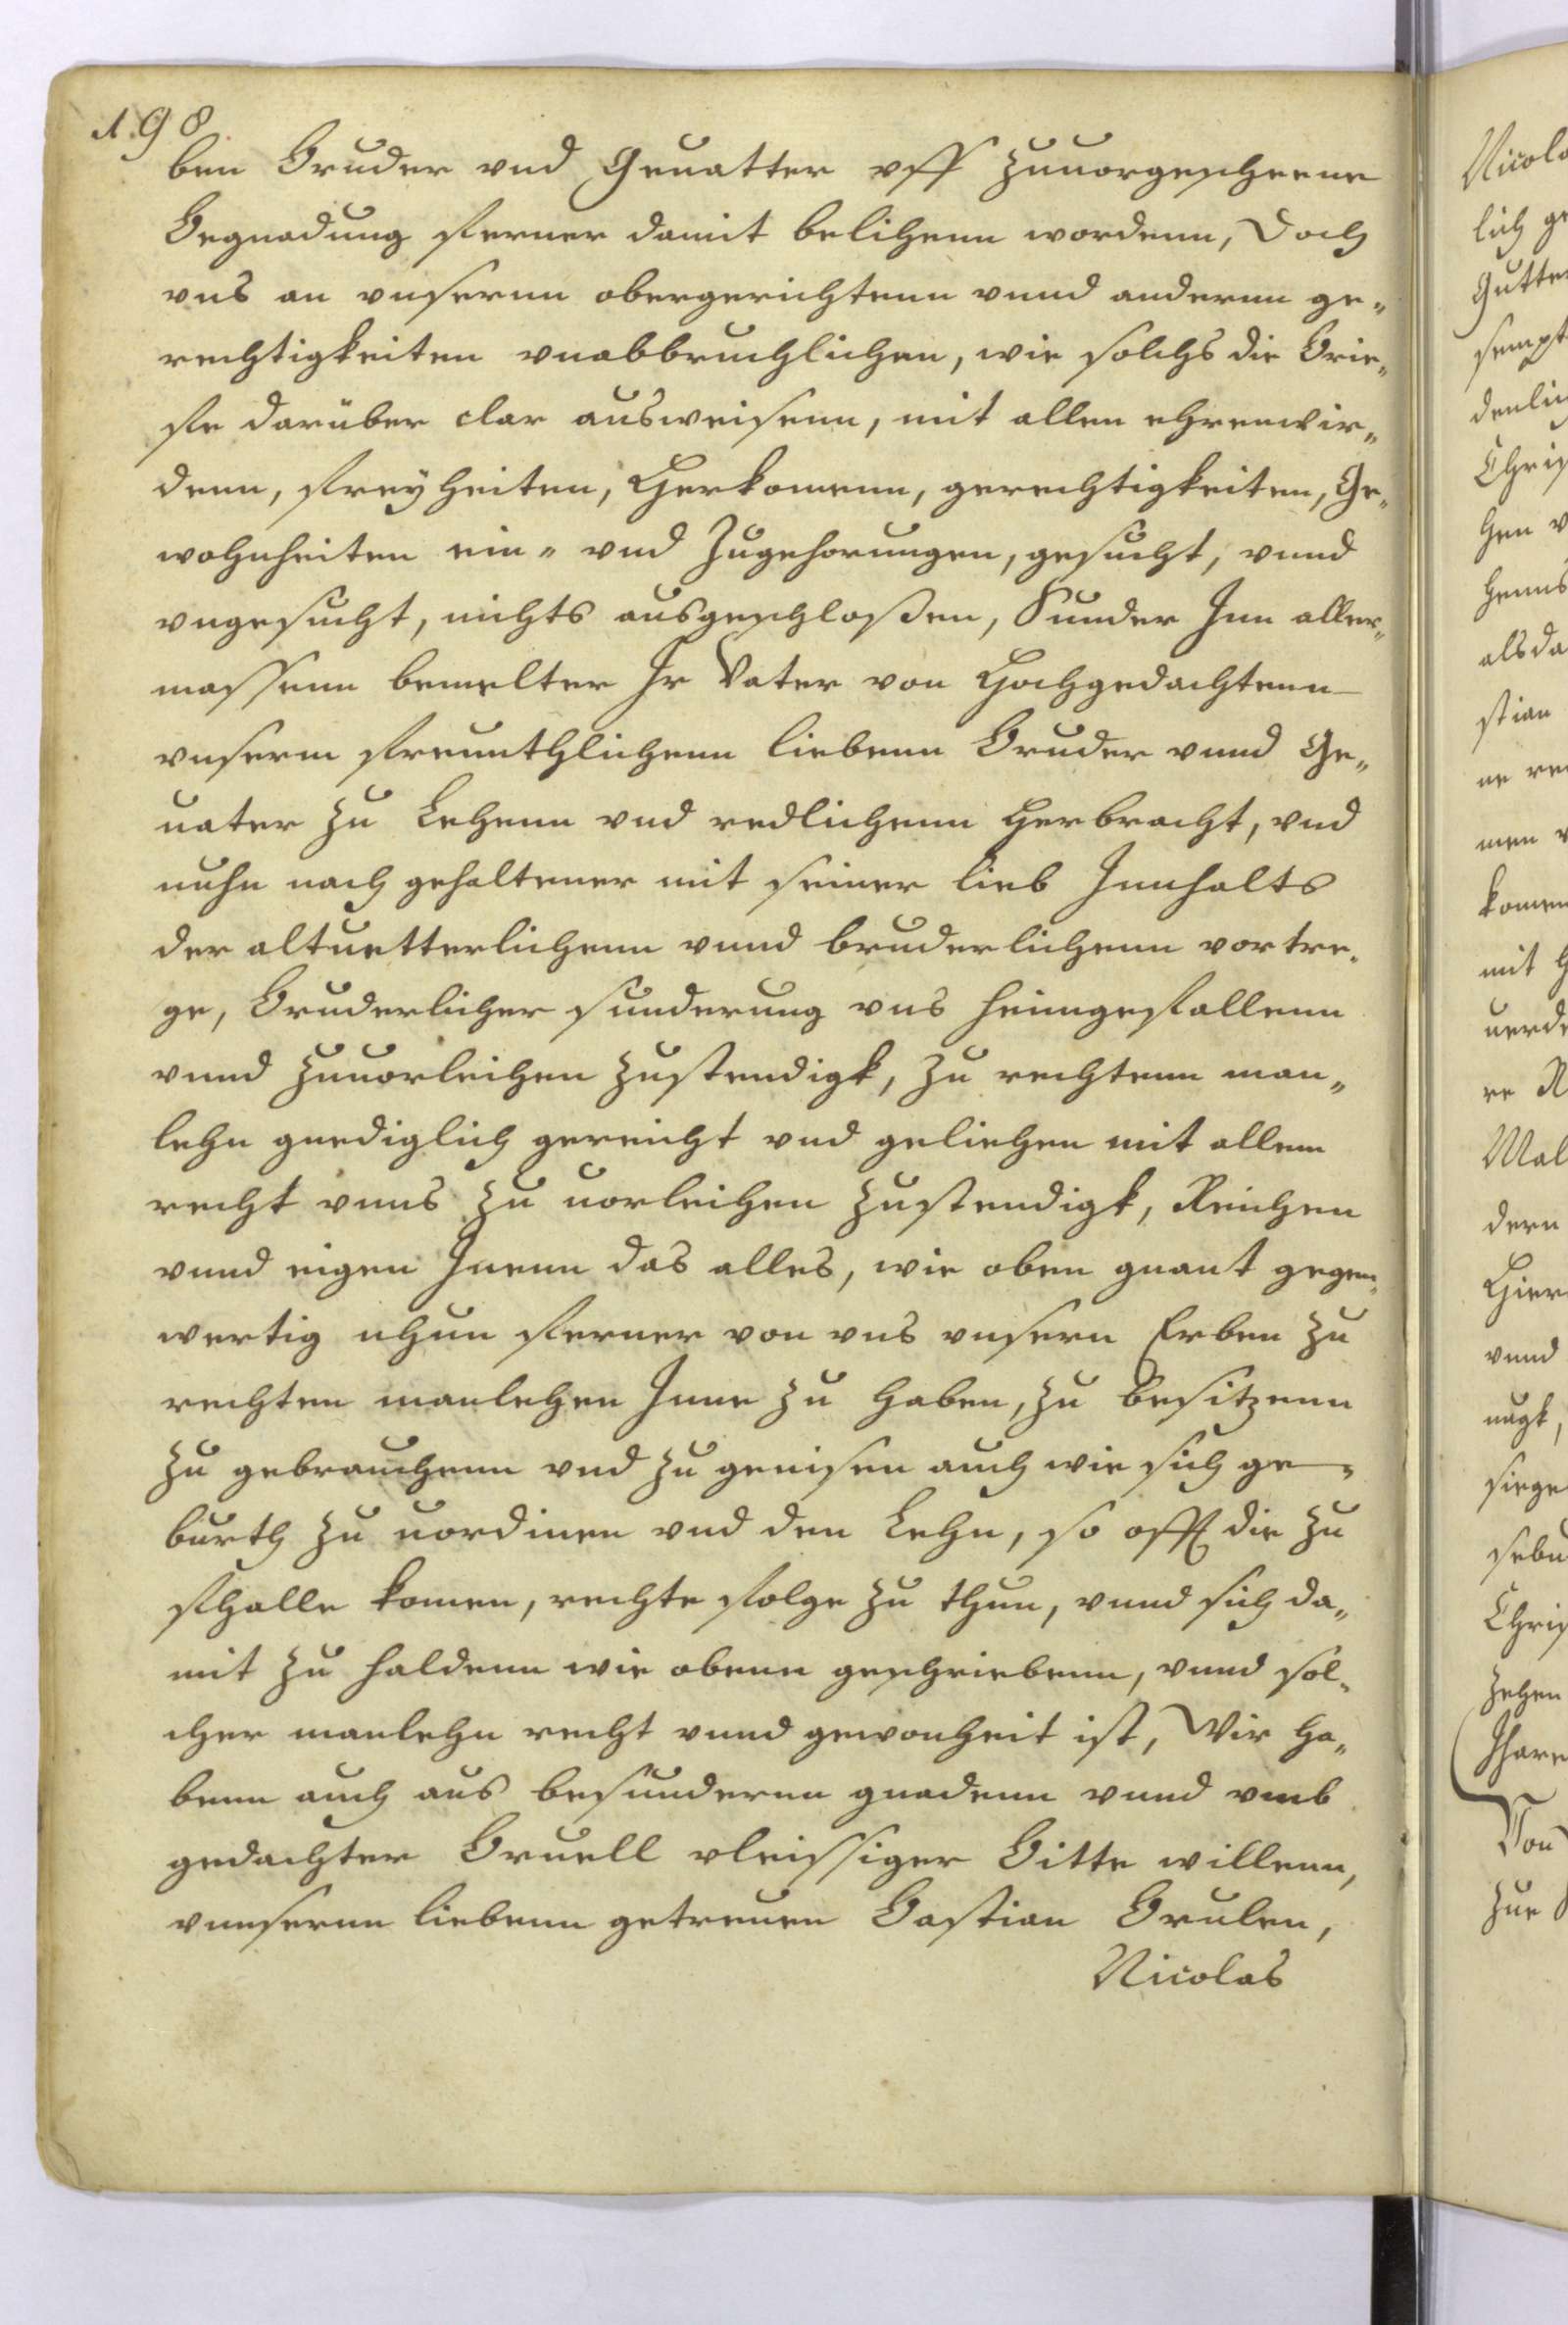 198
ben Bruder vnd Geuatter vff zuuorgescheene
Begnadung ferner damit belihenn wordenn, Doch
vns an vnsernn obergerichtenn vnnd andernn ge„
rechtigkeiten vnabbruchlichen, wie solchs die Brie„
fe darüber clar ausweisenn, mit allen ehrenwir„
denn, freyheiten, Herkomenn, gerechtigkeiten, Ge„
wohnheiten ein„ vnd Zugehorungen, gesucht, vnnd
vngesucht, nichts ausgeschloßen, Sunder Inn aller„
massenn bemelter Ir Vater von Hochgedachtenn
vnserm freunthlichenn liebenn Bruder vnnd Ge„
uater zu Lehenn vnd redlichenn Herbracht, vnd
nuhn nach gehaltener mit seiner lieb Innhalts
der altuetterlichenn vnnd bruderlichenn vortre„
ge, Bruderlicher sunderung vns heimgefallenn
vnnd zuuorleihen zustendigk, zu rechtenn man„
lehn gnediglich gereicht vnd geliehen mit allem
recht vnns zu uorleihen zustendigk, Reichen
vnnd eigen Inenn das alles, wie oben gnant gegen„
wertig nhun ferner von vns vnsern Erben zu
rechten manlehen Inne zu haben, zu besitzenn
zu gebrauchenn vnd zu genisen auch wie sich ge„
burth zu uordinen vnd den Lehn, so offt die zu
fhalle komen, rechte folge zu thun, vnnd sich da„
mit zu haldenn wie obenn geschriebenn, vnnd sol„
cher manlehn recht vnnd gewonheit ist, Wir ha„
benn auch aus besundernn gnadenn vnnd vmb
gedachter Bruell vleissiger Bitte willenn,
vnnsernn liebenn getreuen Bastian Brulen,
Nicolas
lich
Chris
hen
alsda
stian
komen
mit
dern
vnnd
Chris
zehen
Von
zur